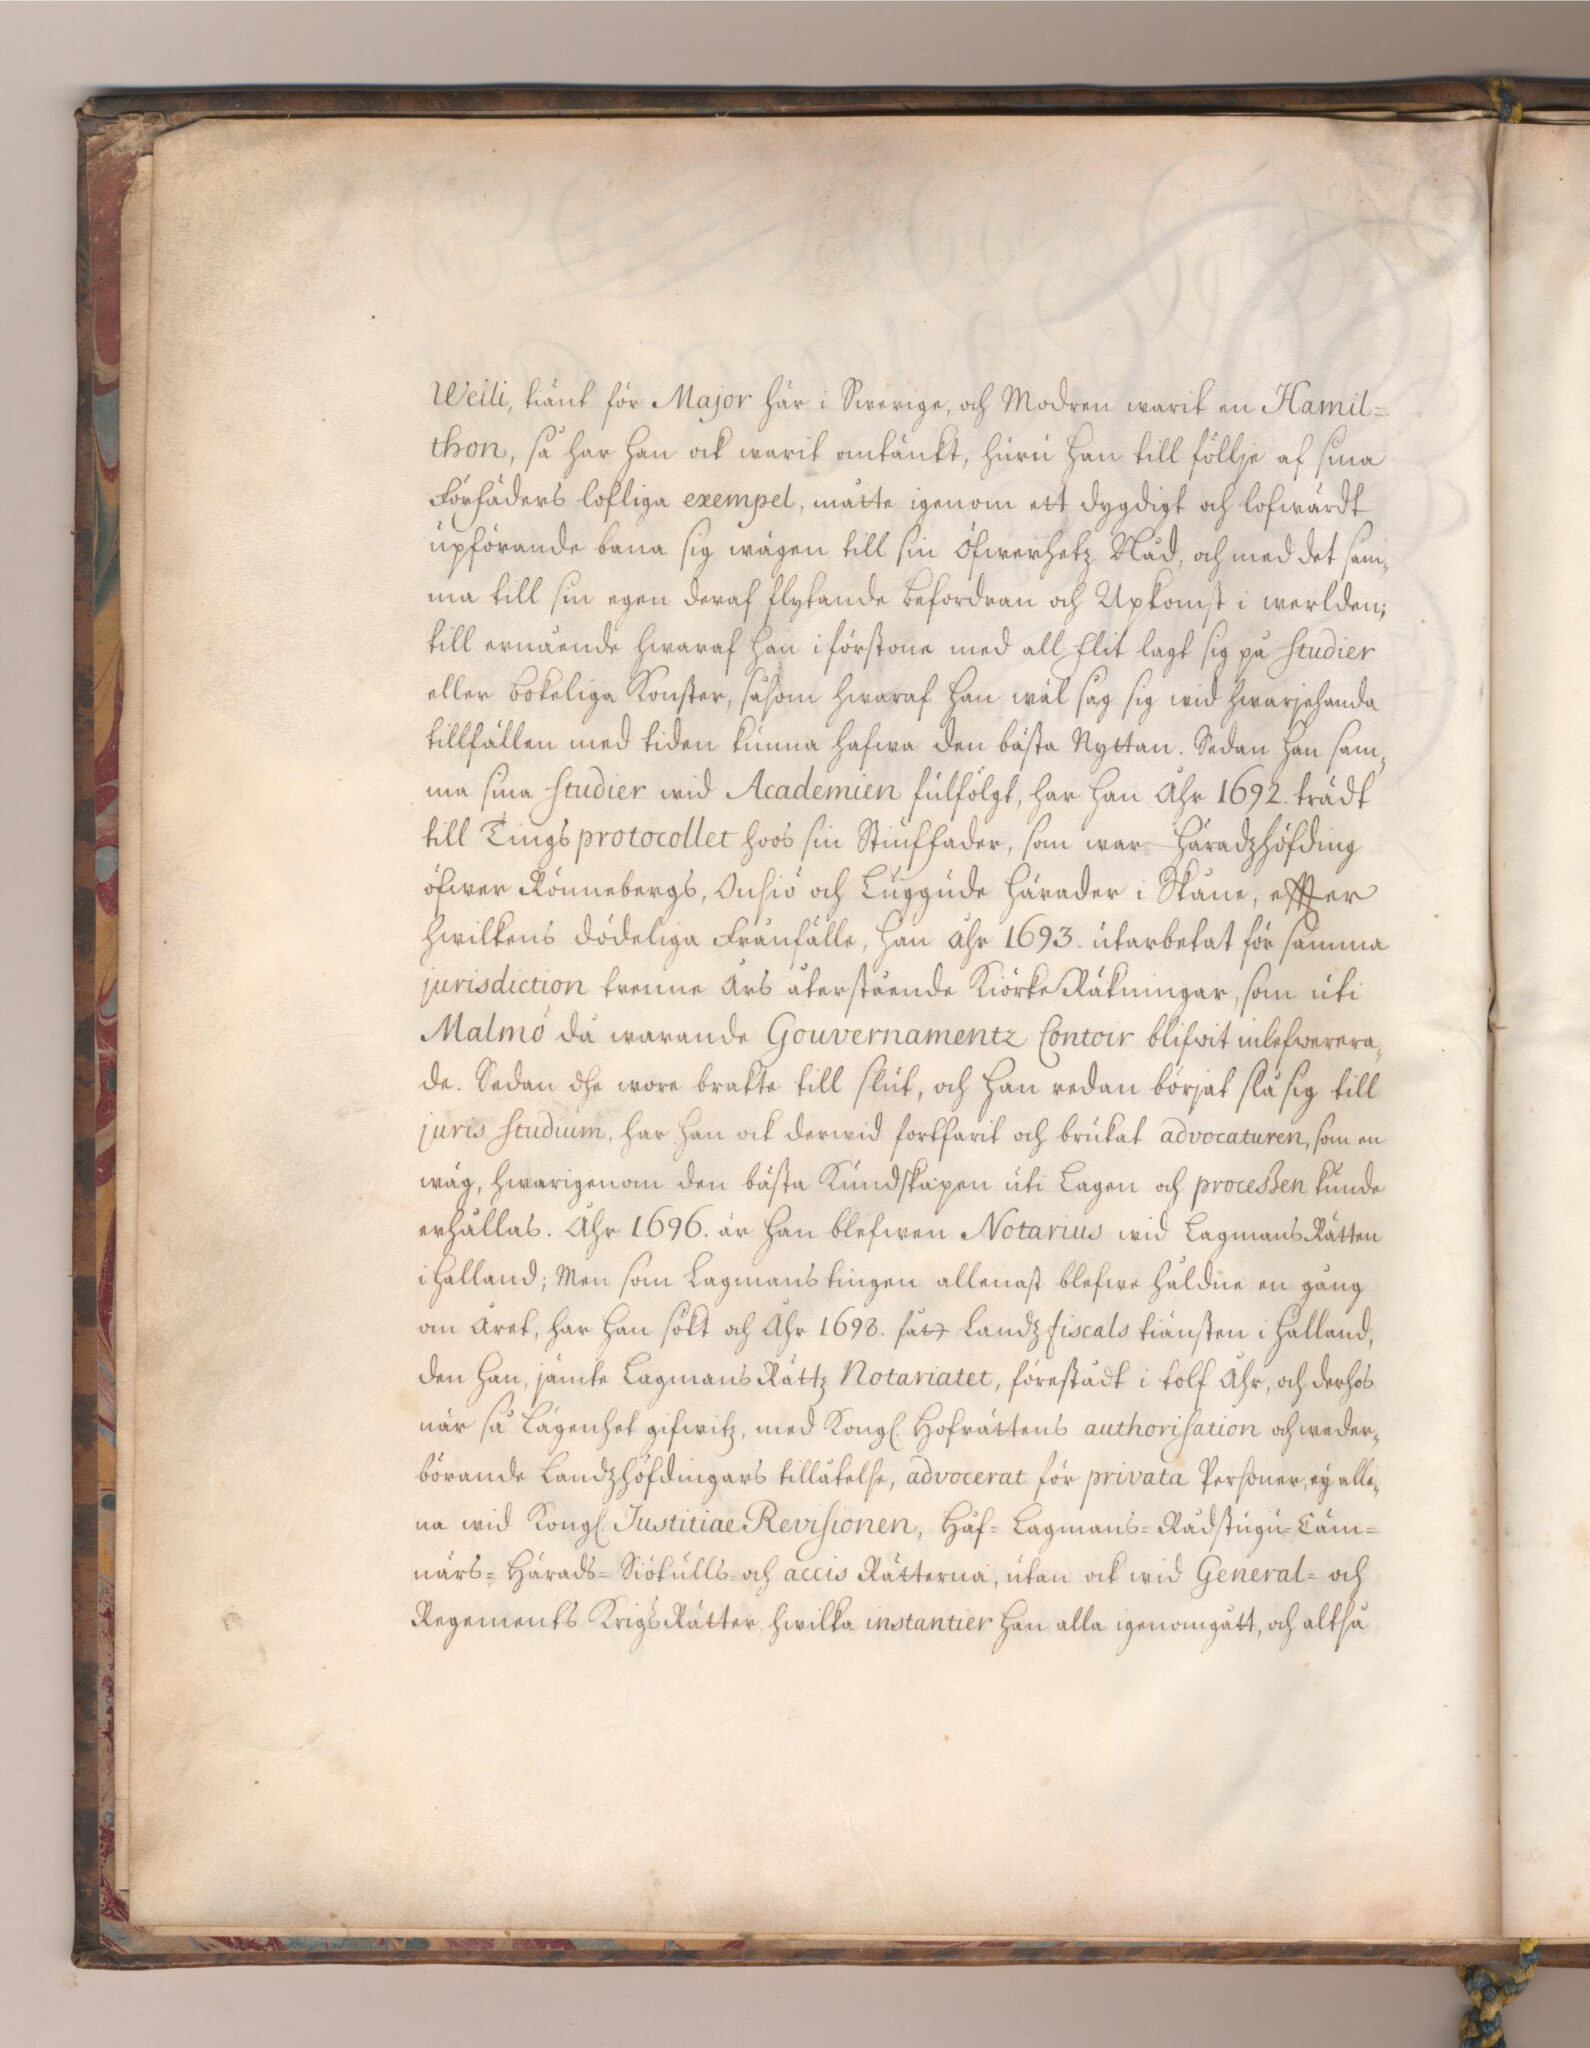 Weili, tiänt för Major här i Swerige, och Modren warit en Hamil=
thon, så har han ock warit omtänkt, huru han till följje af sina
Förfäders lofliga exempel, måtte igenom ett dygdigt och lofwärdt
upförande bana sig wägen till sin Öfwerhetz Nåd, och med det sam„
ma till sin egen deraf flytande befordran och Upkomst i werlden;
till ernående hwaraf han i förstone med all flit lagt sig på Studier
eller bokeliga Konster, såsom hwaraf han wäl såg sig wid hwarjehanda
tillfällen med tiden kunna hafwa den bästa Nyttan. Sedan han sam„
ma sina Studier wid Academien fulfölgt, har han Åhr 1692. trädt
till Tings protocollet hoos sin Stiuffader, som war Häradzhöfding
öfwer Rönnebergs, Onsiö och Luggude Härader i Skåne, effter
hwilkens dödeliga Frånfälle, han Åhr 1693. utarbetat för samma
jurisdiction trenne Års återstående Kiörke Räkningar, som uti
Malmö då warande Gouvernamentz Contoir blifwit inlefwerera„
de. Sedan dhe wore brakte till slut, och han redan börjat slå sig till
juris Studium, har han ock derwid fortfarit och brukat advocaturen, som en
wäg, hwarigenom den bästa Kundskapen uti Lagen och processen kunde
erhållas. Åhr 1696. är han blefwen Notarius wid Lagmans Rätten
i Halland; Men som Lagmans tingen allenast blefwe håldne en gång
om Året, har han sökt och Åhr 1698. fått Landz fiscals tiänsten i Halland,
den han, jämte Lagmans Rättz Notariatet, förestådt i tolf Åhr, och derhos
när så Lägenhet gifwitz, med Kongl. Hofrättens authorisation och weder„
börande Landzhöfdingars tillåtelse, advocerat för privata Personer, ey alle„
na wid Kongl. Justitiae Revisionen, Håf= Lagmans= Rådstugu= Cäm=
närs= Härads= Siötulls= och accis Rätterna, utan ock wid General= och
Regements Krigs Rätter, hwilka instantier han alla igenomgått, och altså